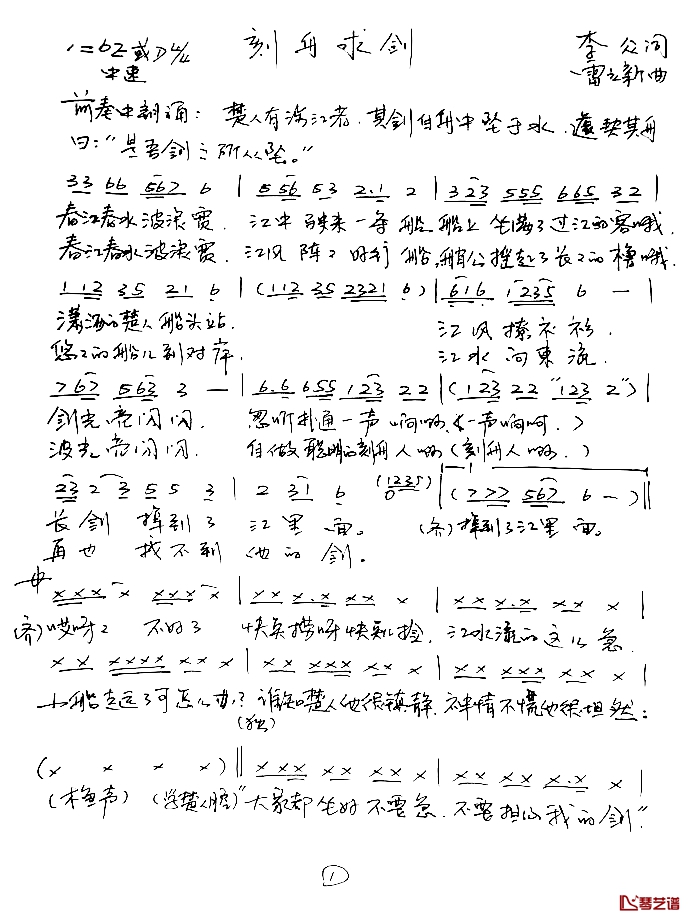 刻舟求剑
1=bE或D 4/4
中速
李众词
雷立新曲
前奏中朗诵：楚人有涉江者，其剑自舟中坠于水，遽契其舟
曰：“是吾剑之所从坠。”
33 66 567 6 | 5 56 53 2·1 2 | 323 555 665 32 |
春江春水波浪宽，江中驶来一条船，船上坐满了过江的客哦，
春江春水波浪宽，江风阵阵好行船，船公推起了长长的橹哦，
112 35 21 6 | (112 35 2321 6) | 616 1235 6 — |
潇洒的楚人船头站，江风撩衣衫，
悠悠的船儿到对岸，江水向东流，
767 563 3 — | 6·6 655 123 22 | (123 22 “123 2”) |
剑光亮闪闪，忽听扑通一声响啊，(一声响啊，)
波光亮闪闪，自做聪明的刻舟人啊 (刻舟人啊，)
23 2 3 5 5 3 | 2 31 6 (1235) 0 | (777 567 6 —) ||
长剑掉到了江里面。(齐) 掉到了江里面。
再也找不到他的剑。
xxx x xxx x | xx x·x xx x | xx x·x xx x |
(齐) 哎呀呀 不好了 快点捞呀快点捡，江水流的这么急
xx xxxx xx x | xx xxx xx x | xx xxx xx x |
小船走远了可怎么办？谁知楚人他很镇静，神情不慌他很坦然：
(独)
(x x x x) || xx xxx xx x | xx xx x·x x |
(木鱼声) (学楚人腔) “大家都坐好不要急，不要担心我的剑”
1
琴艺谱